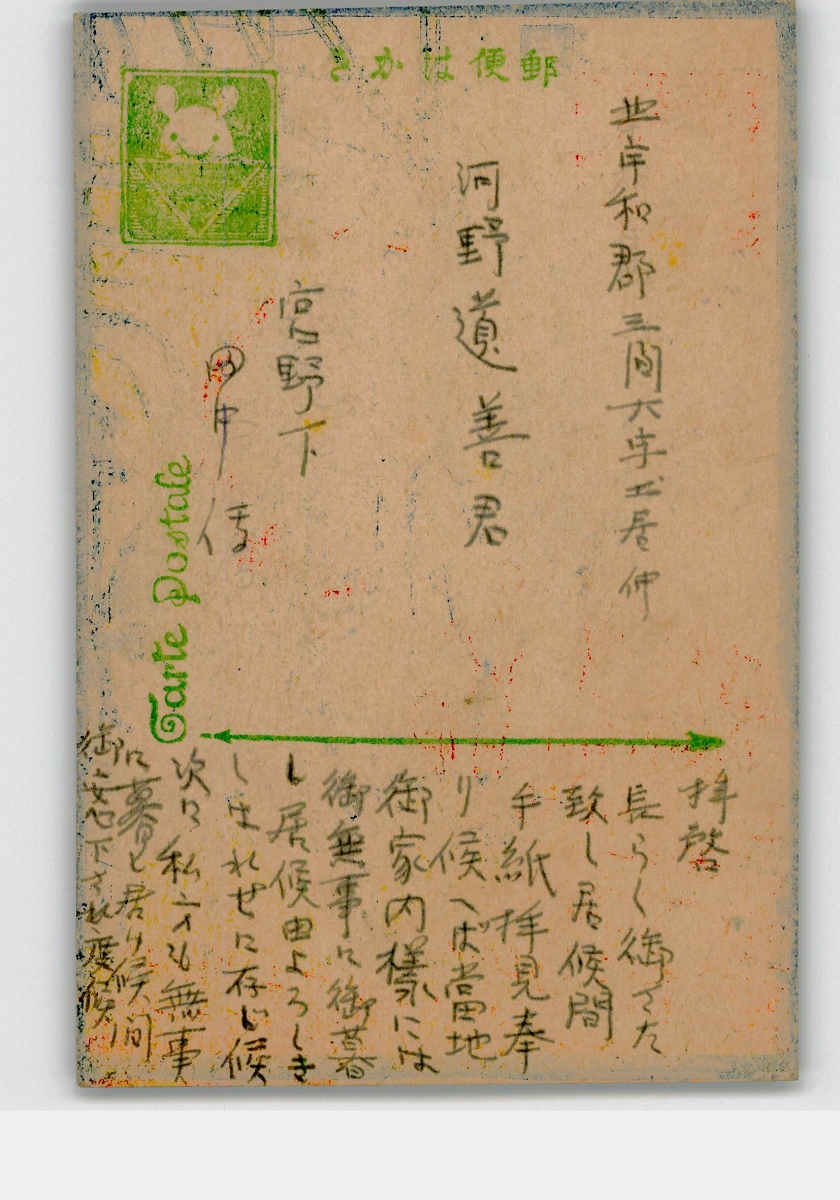 郵便はかき
河野道善君
宮野下
田中
Carte Postale
拝啓
長らく御さた
致し居候間
手紙拝見奉
り候へば當地
御家内樣には
御無事に御暮
し居候由よろしき
しはれせに存じ候
次に私方も無事
に暮し居り候間
御安心下され度候